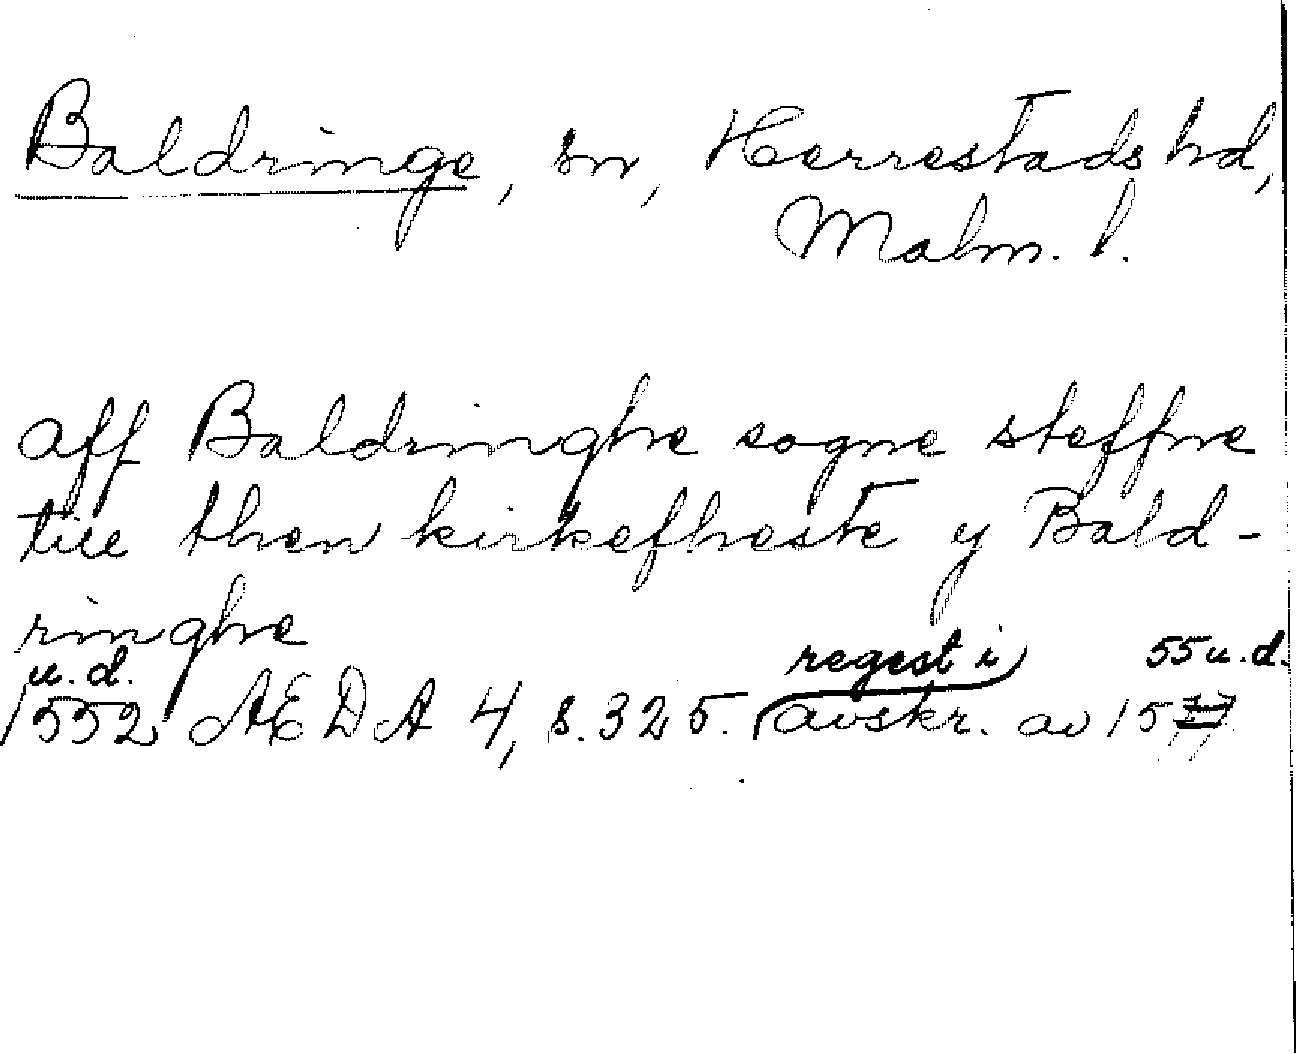 Baldringe, sn, Herrestads hd,
Malm. l.
aff Baldringhe sogne steffne
till then kirkefheste y Bald-
ringhe
u.d. regest i 55 u.d.
1552 AEDA 4, s. 325. avskr. av 1577